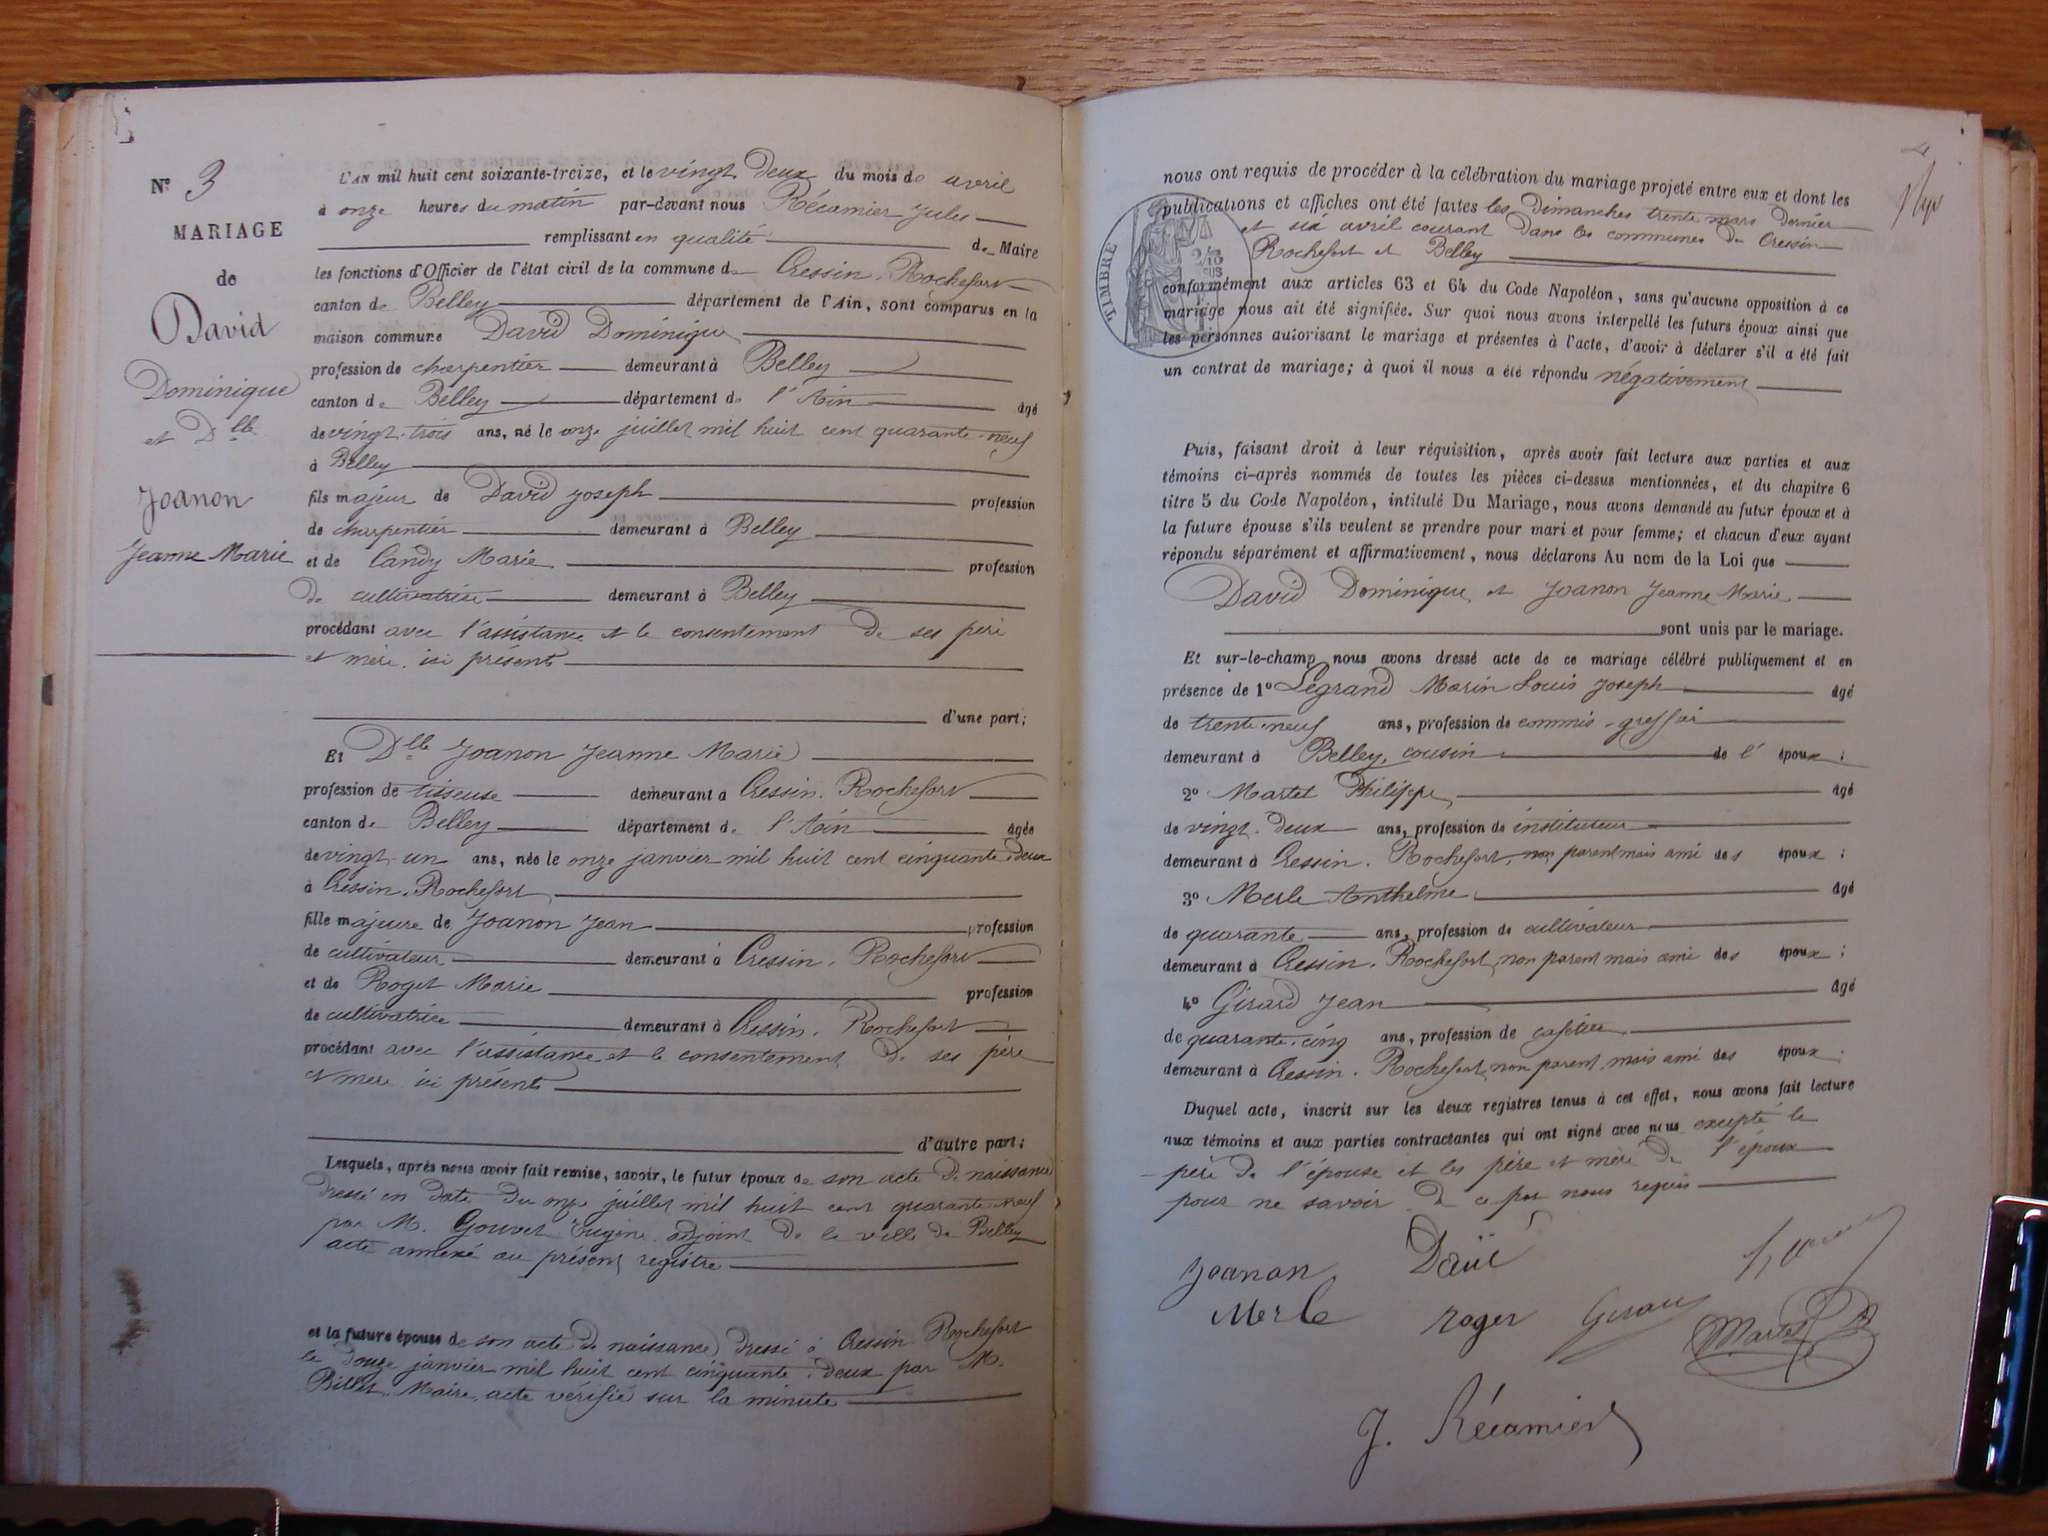 N° 3
MARIAGE
de
David
Dominique
et Dlle
Joanon
Jeanne Marie
L'AN mil huit cent soixante-treize, et le vingt deux du mois de avril
à onze heures du matin par-devant nous Récamier Jules
remplissant en qualité de Maire
les fonctions d'Officier de l'état civil de la commune de Cressin-Rochefort
canton de Belley département de l'Ain, sont comparus en la
maison commune David Dominique
profession de charpentier demeurant à Belley
canton de Belley département de l'Ain âgé
de vingt-trois ans, né le onze juillet mil huit cent quarante-neuf
à Belley
fils majeur de David Joseph profession
de charpentier demeurant à Belley
et de Candy Marie profession
de cultivatrice demeurant à Belley
procédant avec l'assistance et le consentement de ses père
et mère ici présents
d'une part;
Et Dlle Joanon Jeanne Marie
profession de tisseuse demeurant à Cressin-Rochefort
canton de Belley département de l'Ain âgée
de vingt-un ans, née le onze janvier mil huit cent cinquante-deux
à Cressin-Rochefort
fille majeure de Joanon Jean profession
de cultivateur demeurant à Cressin-Rochefort
et de Roget Marie profession
de cultivatrice demeurant à Cressin-Rochefort
procédant avec l'assistance et le consentement de ses père
et mère ici présents
d'autre part;
Lesquels, après nous avoir fait remise, savoir, le futur époux de son acte de naissance
dressé en date du onze juillet mil huit cent quarante-neuf
par M. Gouvet Eugène adjoint de la ville de Belley
acte annexé au présent registre
et la future épouse de son acte de naissance dressé à Cressin-Rochefort
le douze janvier mil huit cent cinquante-deux par M.
Billet, Maire, acte vérifié sur la minute
nous ont requis de procéder à la célébration du mariage projeté entre eux et dont les
publications et affiches ont été faites les dimanches trente mars dernier
et six avril courant dans les communes de Cressin
Rochefort et Belley
TIMBRE
conformément aux articles 63 et 64 du Code Napoléon, sans qu'aucune opposition à ce
mariage nous ait été signifiée. Sur quoi nous avons interpellé les futurs époux ainsi que
les personnes autorisant le mariage et présentes à l'acte, d'avoir à déclarer s'il a été fait
un contrat de mariage; à quoi il nous a été répondu négativement
Puis, faisant droit à leur réquisition, après avoir fait lecture aux parties et aux
témoins ci-après nommés de toutes les pièces ci-dessus mentionnées, et du chapitre 6
titre 5 du Code Napoléon, intitulé Du Mariage, nous avons demandé au futur époux et à
la future épouse s'ils veulent se prendre pour mari et pour femme; et chacun d'eux ayant
répondu séparément et affirmativement, nous déclarons Au nom de la Loi que
David Dominique et Joanon Jeanne Marie
sont unis par le mariage.
Et sur-le-champ nous avons dressé acte de ce mariage célébré publiquement et en
présence de 1° Legrand Marin Louis Joseph âgé
de trente-neuf ans, profession de commis-greffier
demeurant à Belley, cousin de l'époux;
2° Martet Philippe âgé
de vingt-deux ans, profession de instituteur
demeurant à Cressin-Rochefort, non parent mais ami des époux;
3° Merle Anthelme âgé
de quarante ans, profession de cultivateur
demeurant à Cressin-Rochefort, non parent mais ami des époux;
4° Girard Jean âgé
de quarante-cinq ans, profession de cafetier
demeurant à Cressin-Rochefort, non parent mais ami des époux;
Duquel acte, inscrit sur les deux registres tenus à cet effet, nous avons fait lecture
aux témoins et aux parties contractantes qui ont signé avec nous excepté le
père de l'épouse et les père et mère de l'époux
pour ne savoir de ce par nous requis
Joanon
Merle roger Girard Martet
J. Récamier